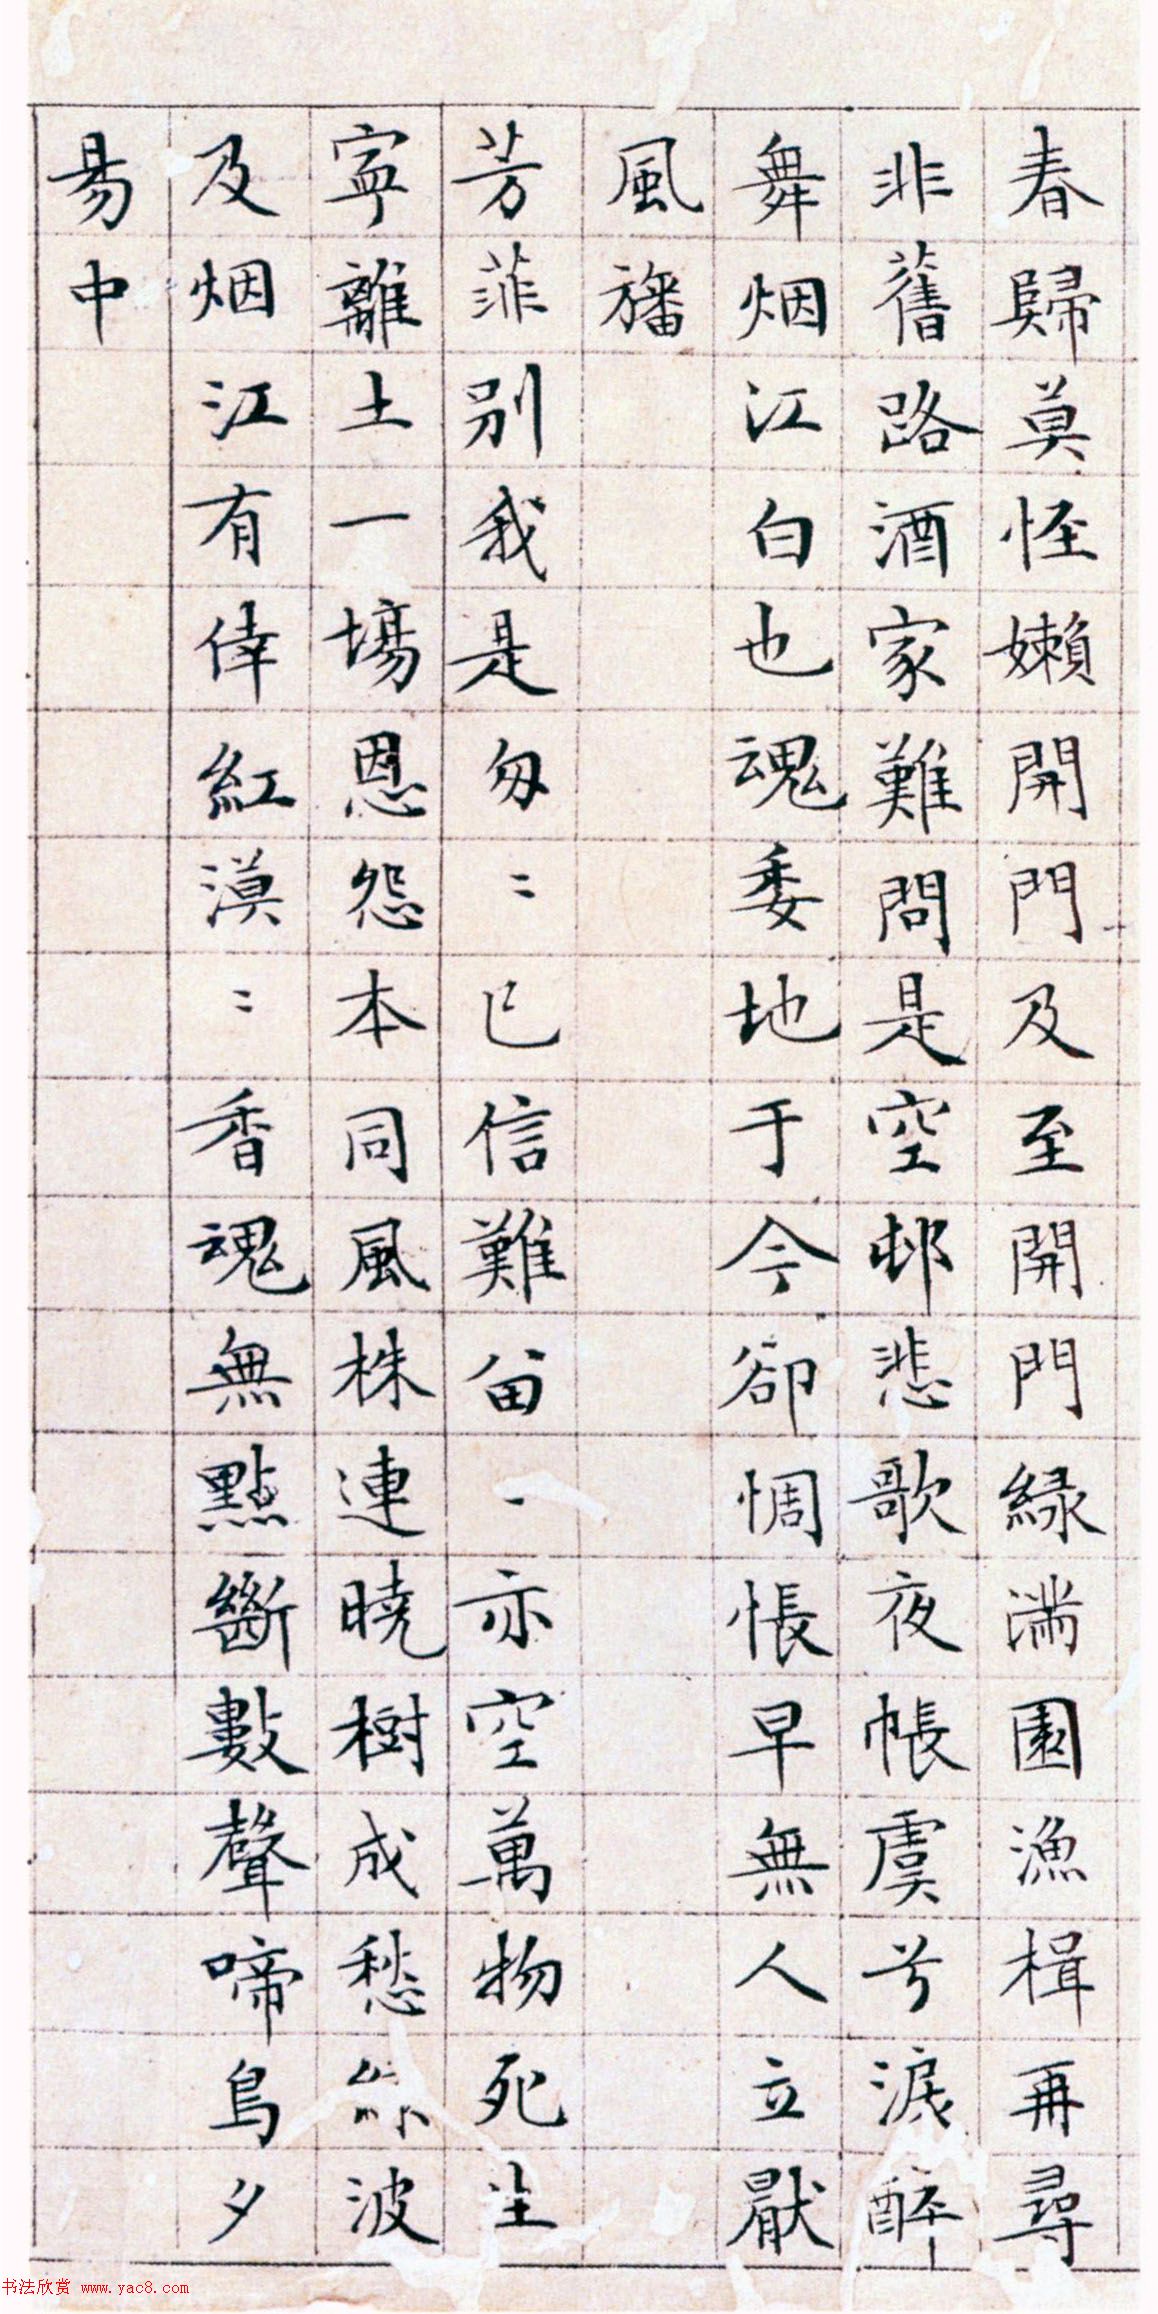 春歸莫怪嬾開門及至開門緑滿園漁楫再尋
非舊路酒家難問是空邨悲歌夜帳虞兮淚醉
舞烟江白也魂委地于今卻惆悵早無人立厭
風旛
芳菲別我是匆〻已信難畱〻亦空萬物死生
寧離土一場恩怨本同風株連曉樹成愁緑波
及烟江有倖紅漠〻香魂無點斷數聲啼鳥夕
昜中
书法欣赏 www.yac8.com